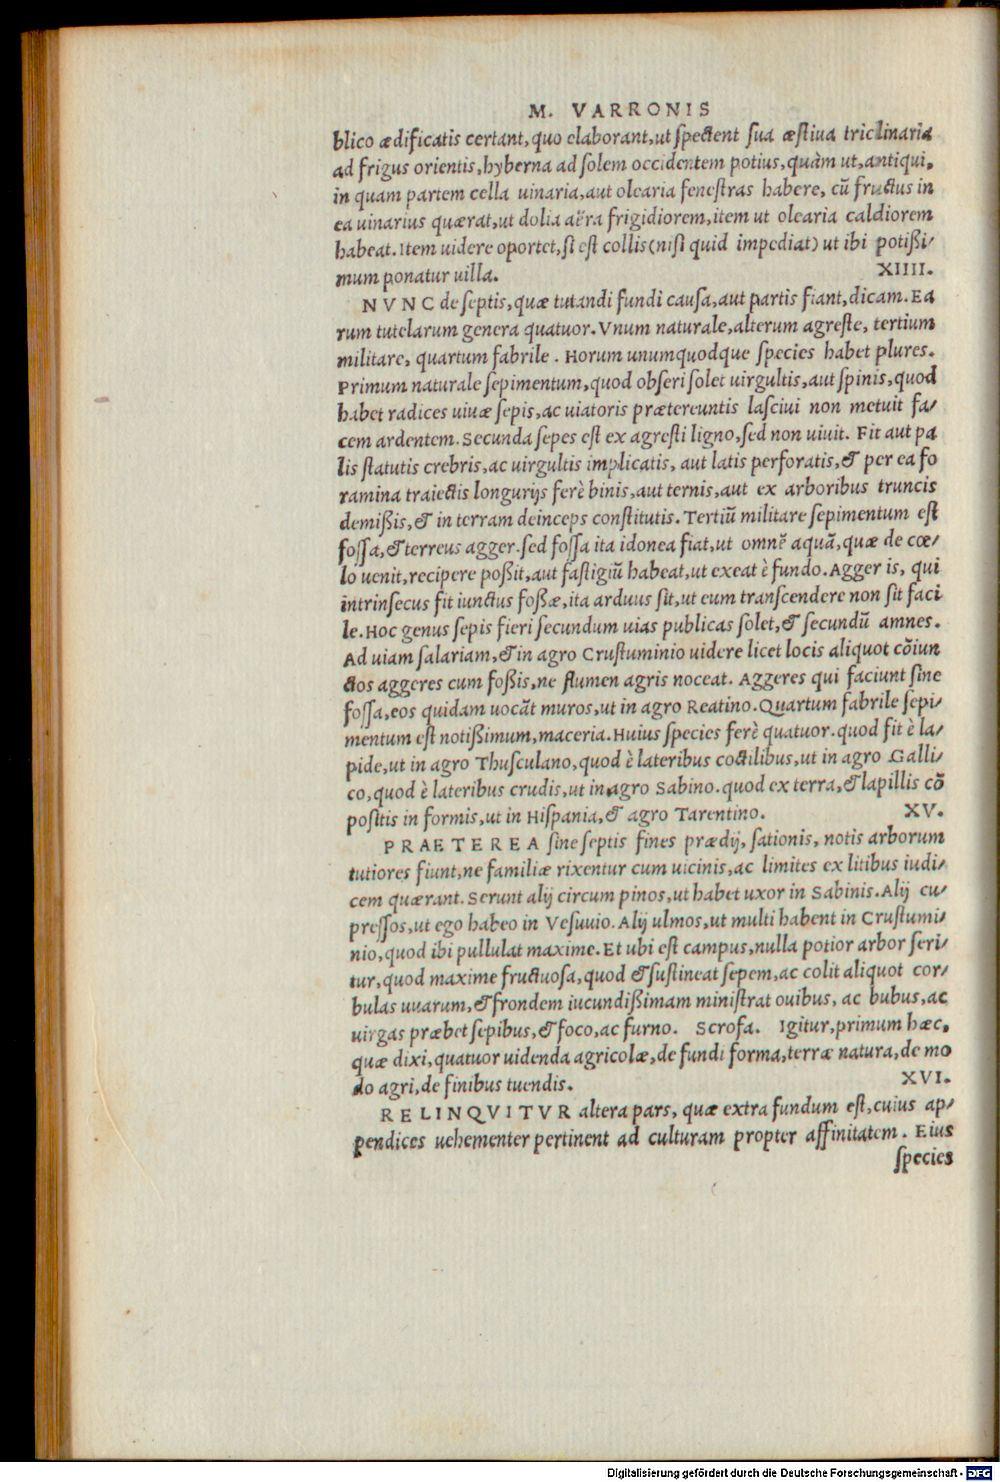 M. VARRONIS
blico ædificatis certant, quo elaborant, ut spectent sua æstiua triclinaria
ad frigus orientis, hyberna ad solem occidentem potius, quàm ut, antiqui,
in quam partem cella uinaria, aut olearia fenestras habere, cũ fructus in
ea uinarius quærat, ut dolia aëra frigidiorem, item ut olearia caldiorem
habeat. Item uidere oportet, si est collis (nisi quid impediat) ut ibi potißi/
mum ponatur uilla. XIIII.
NVNC de septis, quæ tutandi fundi causa, aut partis fiant, dicam. Ea
rum tutelarum genera quatuor. Vnum naturale, alterum agreste, tertium
militare, quartum fabrile. Horum unumquodque species habet plures.
Primum naturale sepimentum, quod obseri solet uirgultis, aut spinis, quod
habet radices uiuæ sepis, ac uiatoris prætereuntis lasciui non metuit fa/
cem ardentem. Secunda sepes est ex agresti ligno, sed non uiuit. Fit aut pa
lis statutis crebris, ac uirgultis implicatis, aut latis perforatis, & per ea fo
ramina traiectis longurijs ferè binis, aut ternis, aut ex arboribus truncis
demißis, & in terram deinceps constitutis. Tertiũ militare sepimentum est
fossa, & terreus agger. sed fossa ita idonea fiat, ut omnẽ aquã, quæ de cœ/
lo uenit, recipere poßit, aut fastigiũ habeat, ut exeat è fundo. Agger is, qui
intrinsecus fit iunctus foßæ, ita arduus sit, ut eum transcendere non sit faci
le. Hoc genus sepis fieri secundum uias publicas solet, & secundũ amnes.
Ad uiam salariam, & in agro Crustuminio uidere licet locis aliquot cõiun
ctos aggeres cum foßis, ne flumen agris noceat. Aggeres qui faciunt sine
fossa, eos quidam uocãt muros, ut in agro Reatino. Quartum fabrile sepi/
mentum est notißimum, maceria. Huius species ferè quatuor. quod fit è la/
pide, ut in agro Thusculano, quod è lateribus coctilibus, ut in agro Galli/
co, quod è lateribus crudis, ut in agro Sabino. quod ex terra, & lapillis cõ
positis in formis, ut in Hispania, & agro Tarentino. XV.
PRAETEREA sine septis fines prædij, sationis, notis arborum
tutiores fiunt, ne familiæ rixentur cum uicinis, ac limites ex litibus iudi/
cem quærant. Serunt alij circum pinos, ut habet uxor in Sabinis. Alij cu/
pressos, ut ego habeo in Vesuuio. Alij ulmos, ut multi habent in Crustumi/
nio, quod ibi pullulat maxime. Et ubi est campus, nulla potior arbor seri/
tur, quod maxime fructuosa, quod & sustineat sepem, ac colit aliquot cor/
bulas uuarum, & frondem iucundißimam ministrat ouibus, ac bubus, ac
uirgas præbet sepibus, & foco, ac furno. Scrofa. Igitur, primum hæc,
quæ dixi, quatuor uidenda agricolæ, de fundi forma, terræ natura, de mo
do agri, de finibus tuendis. XVI.
RELINQVITVR altera pars, quæ extra fundum est, cuius ap/
pendices uehementer pertinent ad culturam propter affinitatem. Eius
species
Digitalisierung gefördert durch die Deutsche Forschungsgemeinschaft - DFG